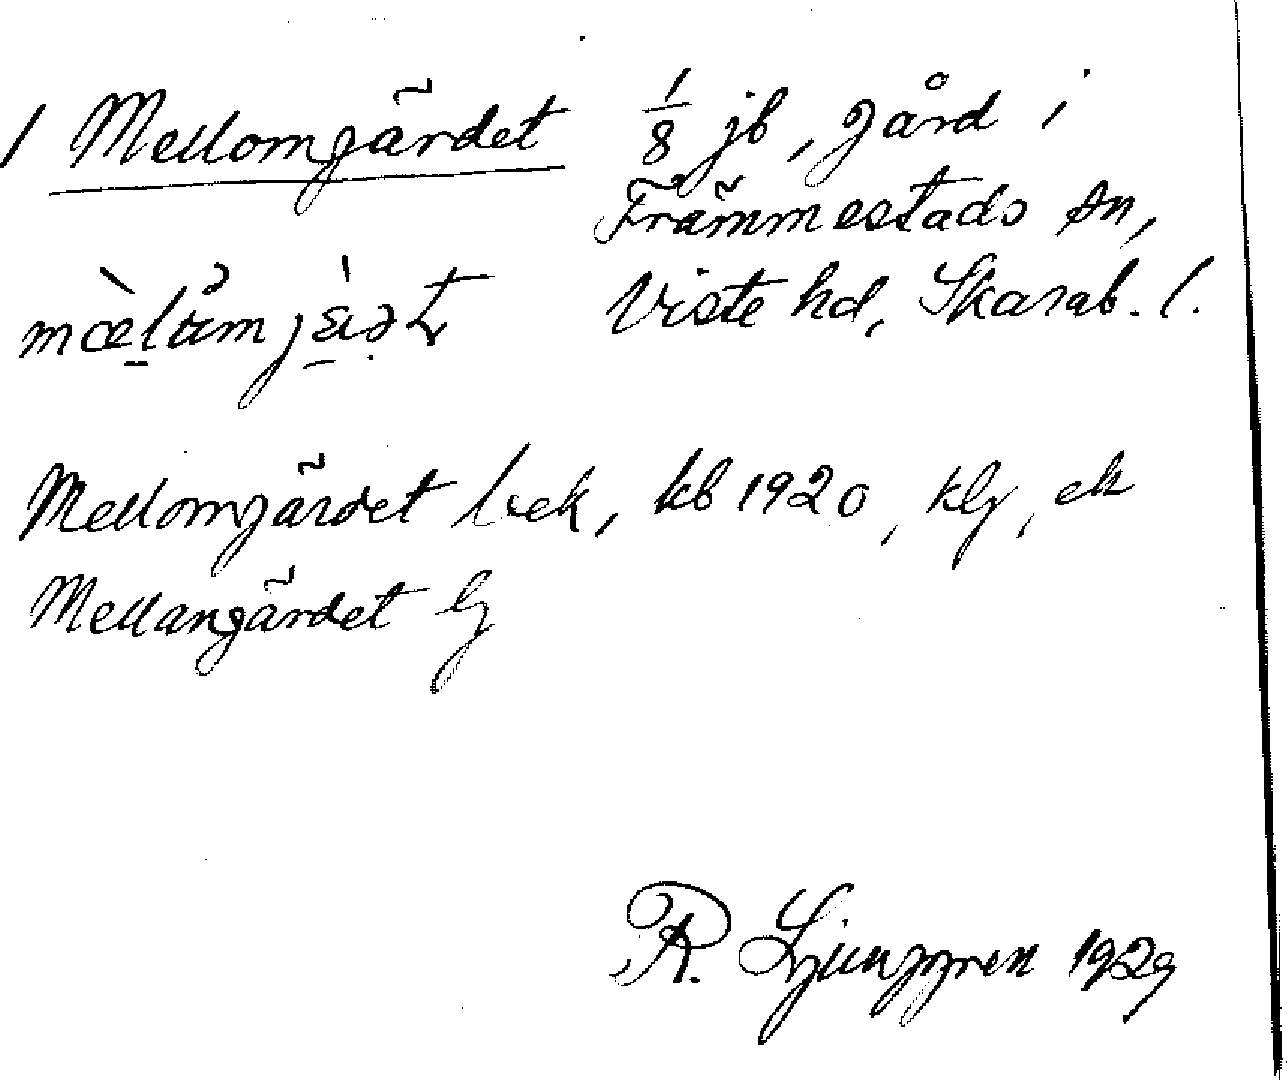 / Mellomgärdet 1/8 jb, gård i
Främmestads sn,
Viste hd, Skarab. l.
Mellomgärdet kb 1920, klg, ek
Mellangärdet lj
R. Ljunggren 1929